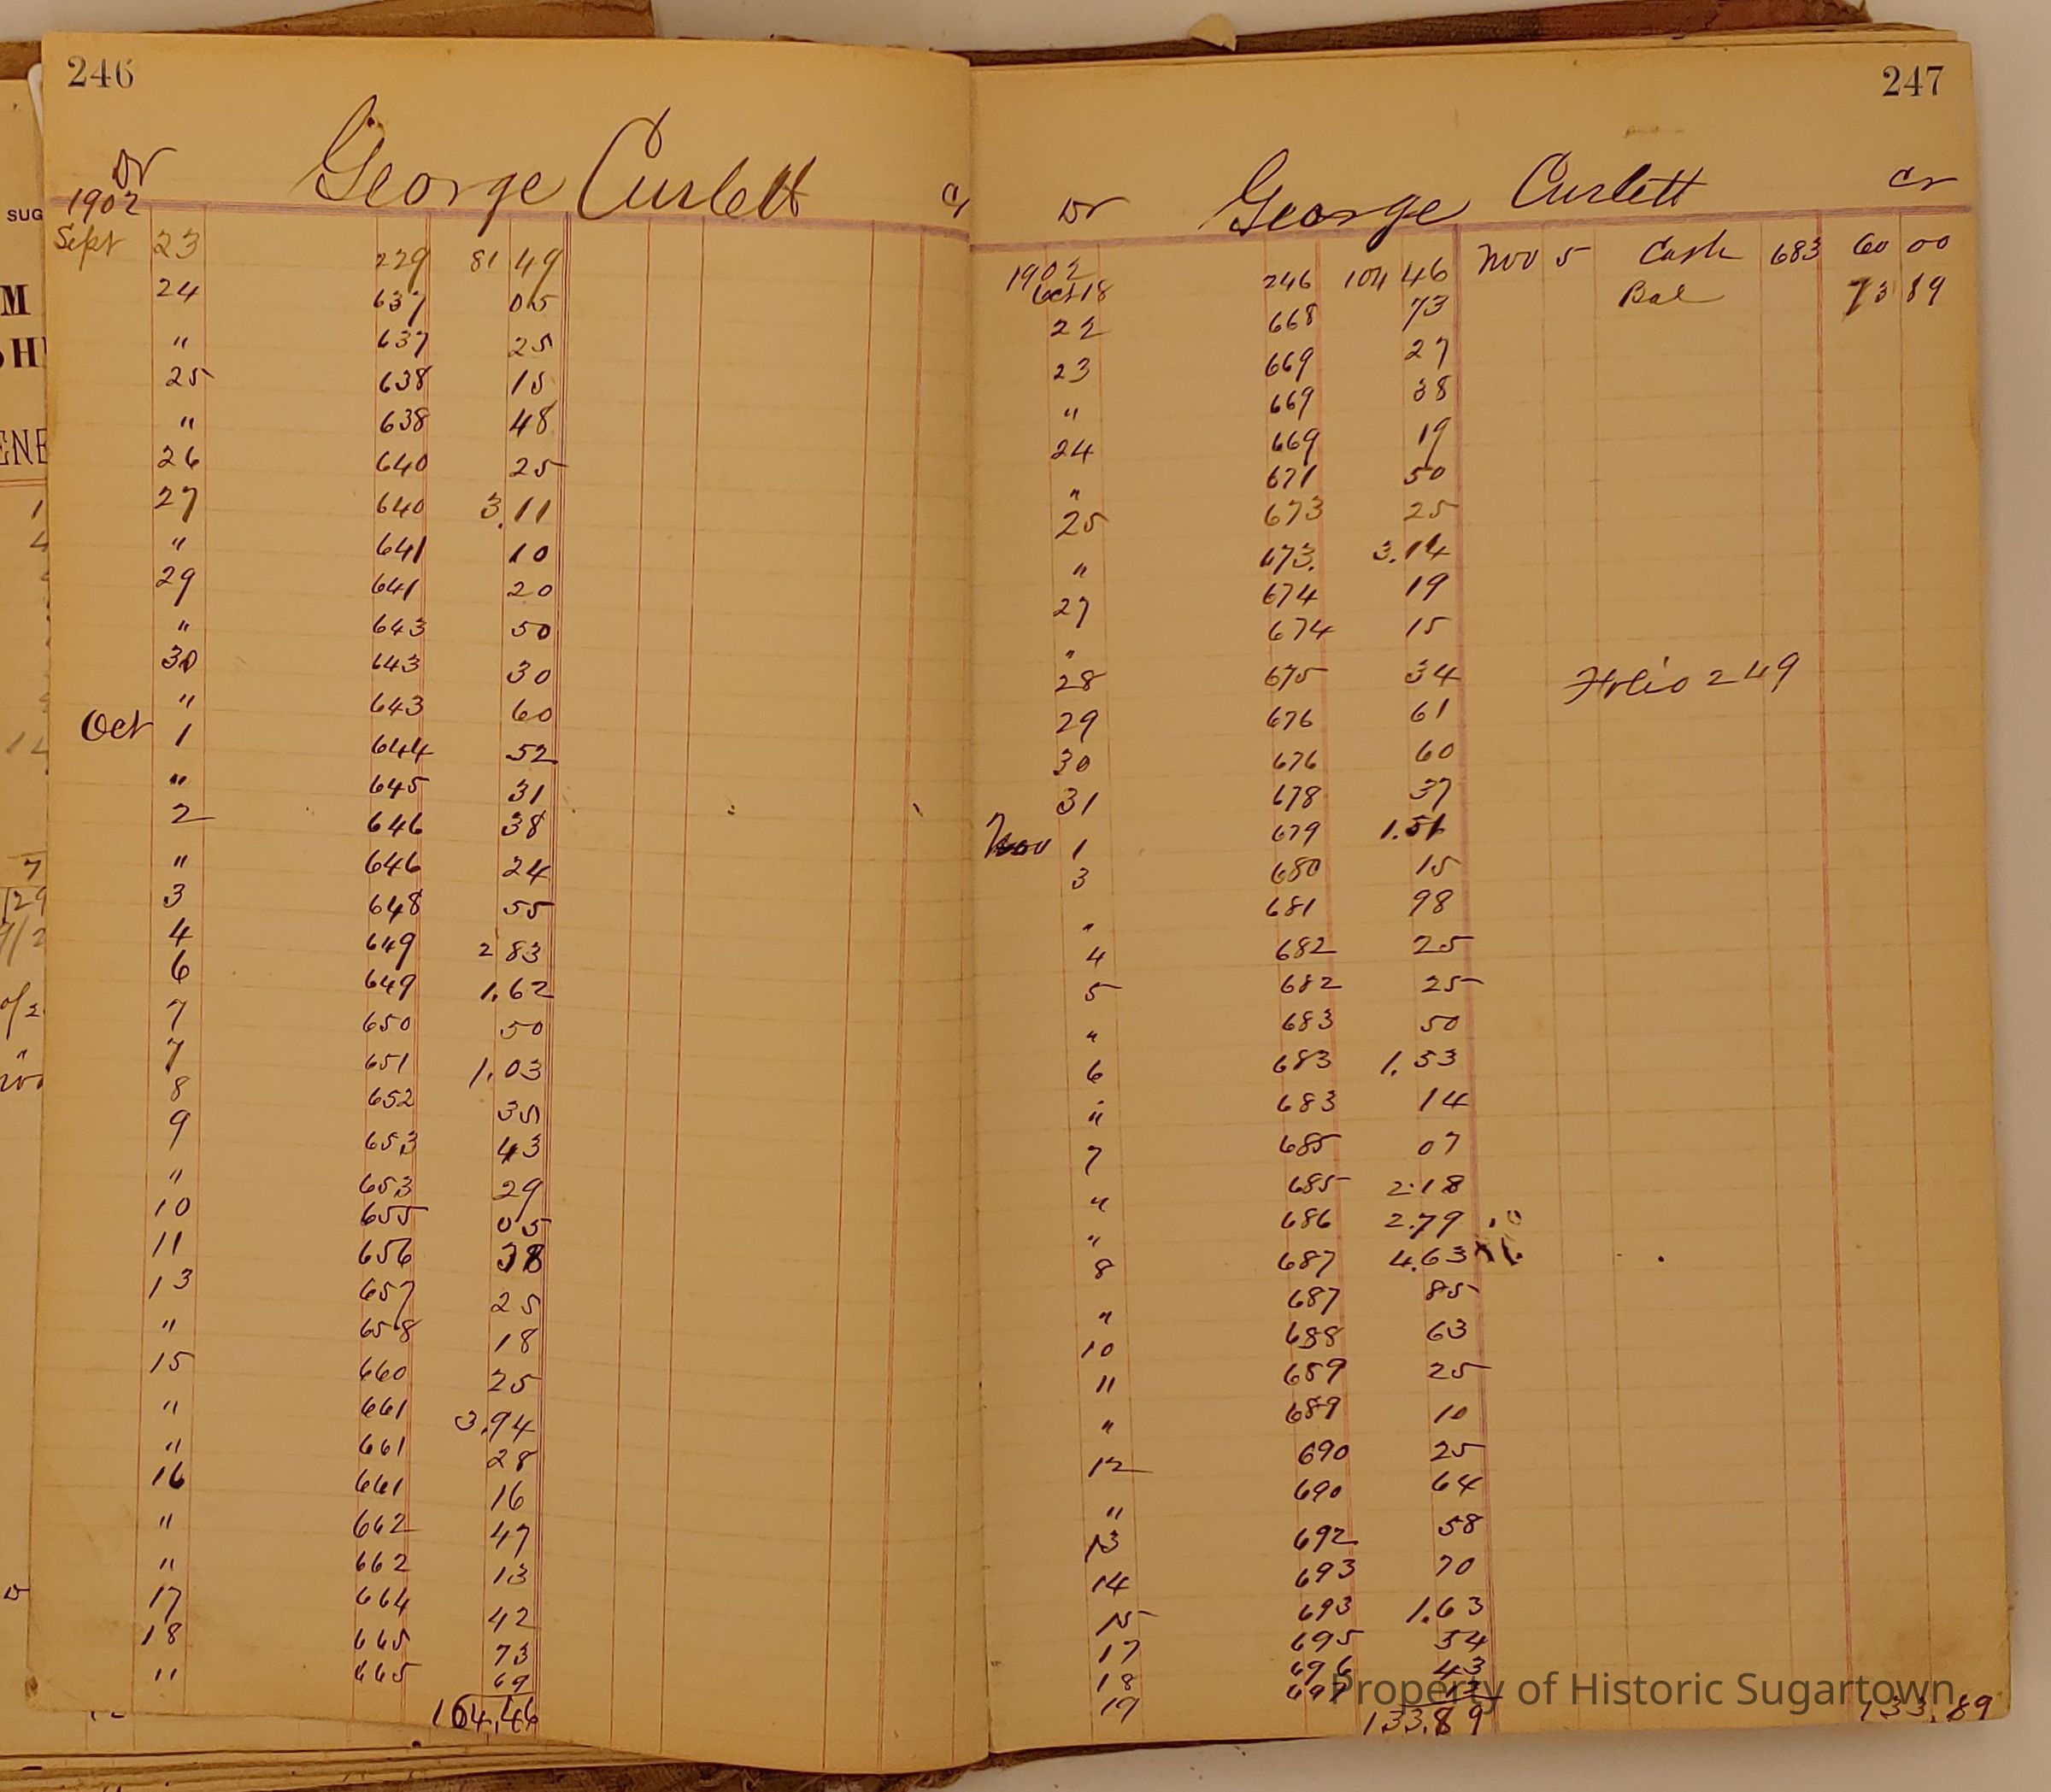 246
Dr George Curlett Cr
1902
Sept 23 229 81 49
24 637 05
" 637 25
25 638 15
" 638 48
26 640 25
27 640 3.11
" 641 10
29 641 20
" 643 50
30 643 30
" 643 60
Oct 1 644 52
" 645 31
2 646 38
" 646 24
3 648 55
4 649 2 83
6 649 1.62
7 650 50
7 651 1.03
8 652 35
9 653 43
" 653 29
10 655 05
11 656 38
13 657 25
" 658 18
15 660 25
" 661 3.94
" 661 28
16 661 16
" 662 47
" 662 13
17 664 42
18 665 73
" 665 69
104.46
247
Dr George Curlett Cr
1902
Oct 18 246 104 46 Nov 5 Cash 683 60 00
22 668 73 Bal 73 89
23 669 27
" 669 38
24 669 19
" 671 50
25 673 25
" 673. 3.14
27 674 19
" 674 15
28 675 34 Folio 249
29 676 61
30 676 60
31 678 37
Nov 1 679 1.51
3 680 15
" 681 98
4 682 25
5 682 25
" 683 50
6 683 1.53
" 683 14
7 685 07
" 685 2.18
" 686 2.79
8 687 4.63
" 687 85
10 688 63
11 689 25
" 689 10
12 690 25
" 690 64
13 692 58
14 693 70
15 693 1.63
17 695 54
18 696 43
19 697
133.89 133.89
Property of Historic Sugartown
SUG
M
ENE